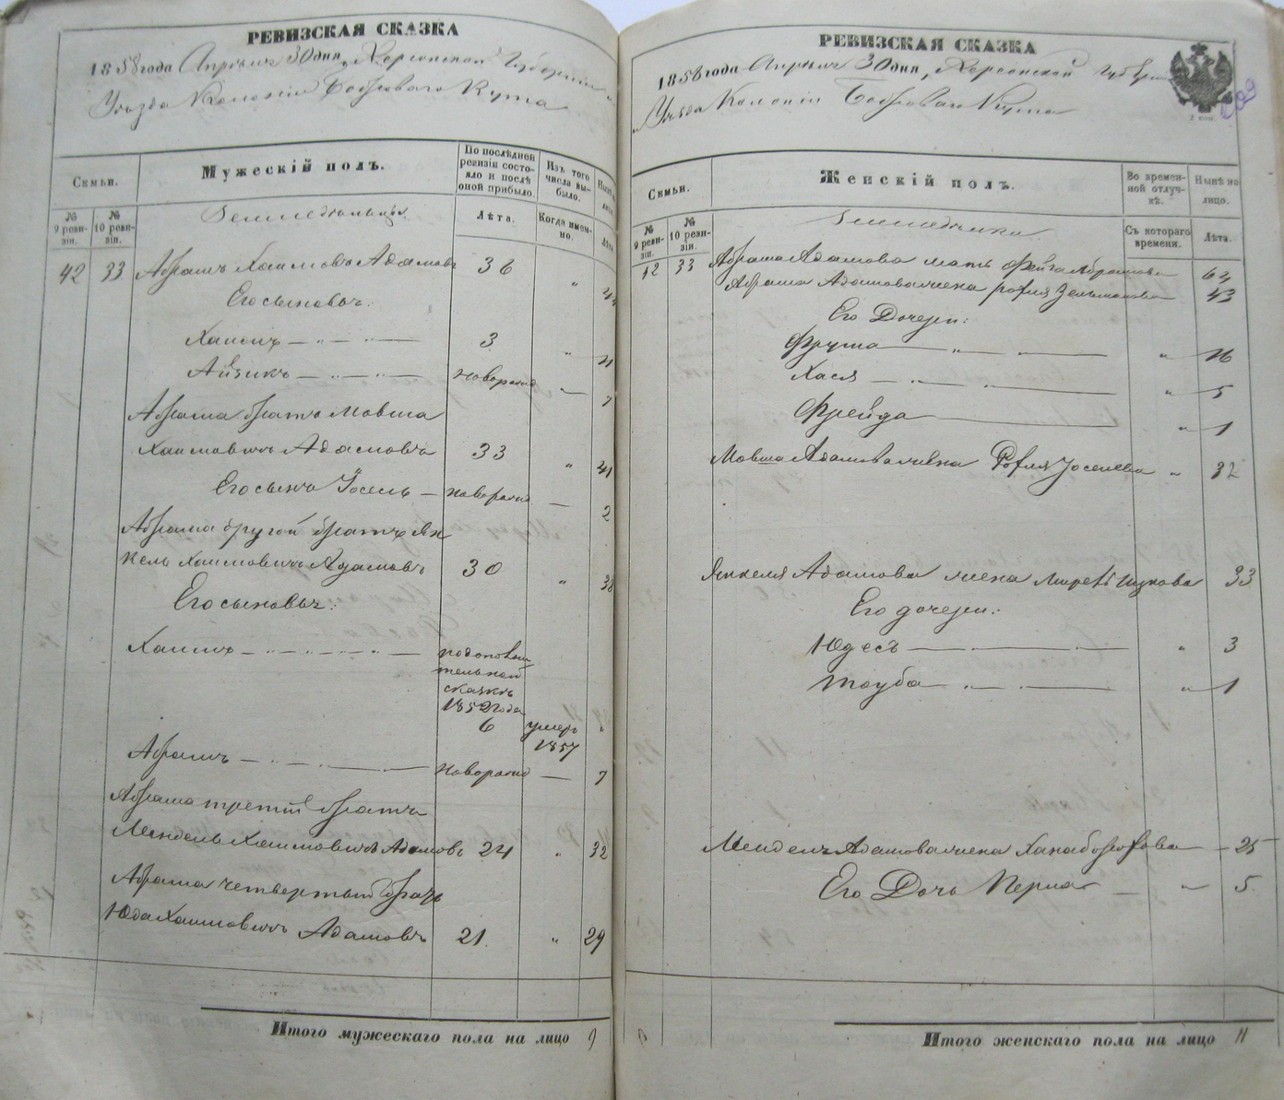 РЕВИЗСКАЯ СКАЗКА
1858 года Апреля 30 дня, Херсонской Губернии
Уезда Колонии Бобровый Кута
Семьи.
Мужескій полъ.
По последней ревизіи состояло и после оной прибыло.
Изъ того числа выбыло.
№ 9 ревизіи.
№ 10 ревизіи.
Земледельцы
Лѣта.
Когда именно.
42 33 Абрамъ Хаимовъ Адамовъ 36 "
Его сыновья:
Хаимъ — " — " — 3 "
Айзикъ — " — " — новорожд — 7
Абрама братъ Мовша
Хаимовичъ Адамовъ 33 " 41
Его сынъ Іосель — новорожд — 2
Абрама другой братъ Ян
кель Хаимовичъ Адамовъ 30 " 38
Его сыновья:
Хаимъ — " — " — " — по дополни
тельной
сказке
1852 года
6 умеръ
1857
Абрамъ — " — " — новорожд — 7
Абрама третій братъ
Мендель Хаимовичъ Адамовъ 24 " 32
Абрама четвертый братъ
Юда Хаимовичъ Адамовъ 21 " 29
Итого мужескаго пола на лицо 9
РЕВИЗСКАЯ СКАЗКА
1858 года Апреля 30 дня, Херсонской Губерн
Уезда Колоніи Бобровый Кута
2 коп.
Семьи.
Женскій полъ.
Во временной отлучкѣ.
Нынѣ на лицо.
№ 9 ревизіи.
№ 10 ревизіи.
Земледельцы
Съ котораго времени.
Лѣта.
42 33 Абрама Адамова мать Фейга Абрамова 64
Абрама Адамова жена Рохля Зельманова 43
Его Дочери:
Фрума — " — " 16
Хася — " — " 5
Фрейда — " 1
Мовша Адамова жена Рохля Іоселева " 32
Янкеля Адамова жена Мирел Ицкова 33
Его дочери:
Юдесъ — " 3
Тауба — " — " 1
Мендель Адамова жена Хана Борохова — 25
Его Дочь Перла — " 5
Итого женскаго пола на лицо 11